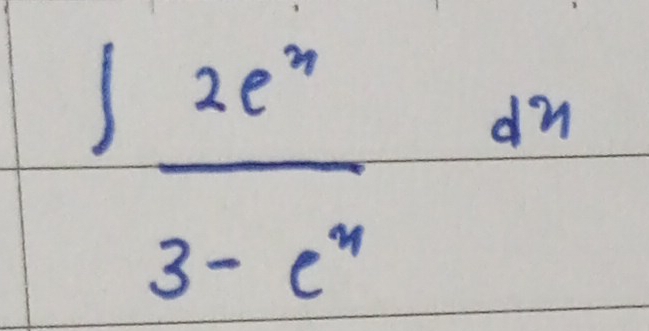 ∫ 2eˣ / 3 - eˣ dx